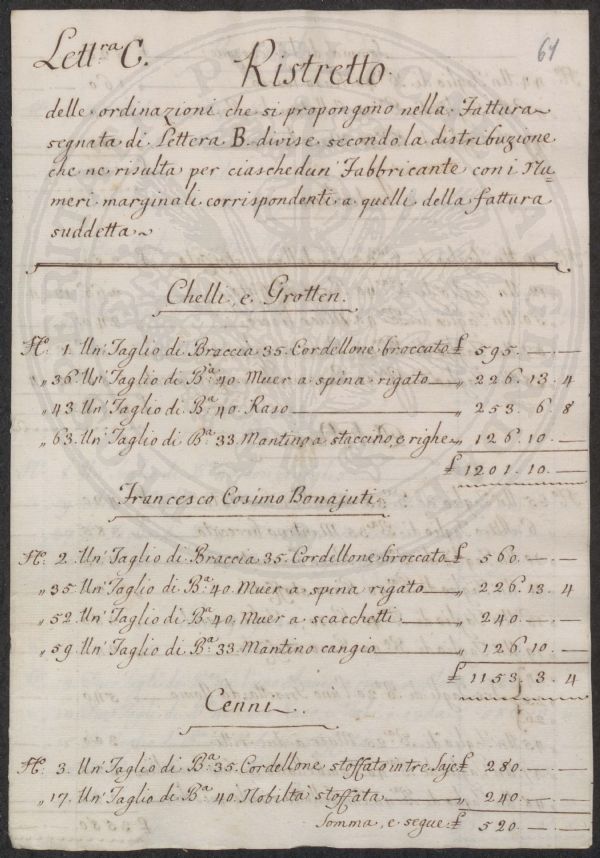 Lett.ra C.
61
Ristretto
delle ordinazioni che si propongono nella Fattura
segnata di Lettera B. divise secondo la distribuzione
che ne risulta per ciaschedun' Fabbricante con i Nu=
meri marginali corrispondenti a quelli della fattura
suddetta
Chelli, e Grotten.
N.° 1. Un' Taglio di Braccia 35. Cordellone broccato £ 595. — . —
" 36. Un' Taglio di B.a 40. Muer a spina rigato — " 226. 13. 4
" 43. Un' Taglio di B.a 40. Raso — " 253. 6. 8
" 63. Un' Taglio di B.a 33. Mantino a staccino, e righe " 126. 10. —
£ 1201. 10. —
Francesco Cosimo Bonajuti
N.° 2. Un' Taglio di Braccia 35. Cordellone broccato £ 560. — . —
" 35. Un' Taglio di B.a 40. Muer a spina rigato — " 226. 13. 4
" 52. Un' Taglio di B.a 40. Muer a scacchetti — " 240. — . —
" 59. Un' Taglio di B.a 33. Mantino cangio — " 126. 10. —
£ 1153. 3. 4
Cenni.
N.° 3. Un' Taglio di B.a 35. Cordellone stoffato in tre Saje £ 280. — . —
" 17. Un' Taglio di B.a 40. Nobiltà stoffata — " 240. — . —
Somma, e segue £ 520. — . —